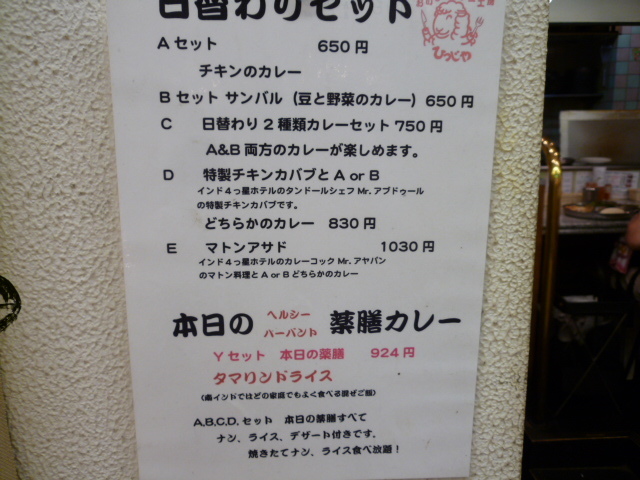 日替わりセット
ひつじや
Aセット 650円
チキンのカレー
Bセット サンバル（豆と野菜のカレー）650円
C 日替わり2種類カレーセット750円
A&B両方のカレーが楽しめます。
D 特製チキンカバブとA or B
インド4っ星ホテルのタンドールシェフMr.アブドゥール
の特製チキンカバブです。
どちらかのカレー 830円
E マトンアサド 1030円
インド4っ星ホテルのカレーコックMr.アヤパン
のマトン料理とA or Bどちらかのカレー
本日の ヘルシー ハーバント 薬膳カレー
Yセット 本日の薬膳 924円
タマリンドライス
（南インドではどの家庭でもよく食べる混ぜご飯）
A,B,C,D.セット 本日の薬膳すべて
ナン、ライス、デザート付きです．
焼きたてナン、ライス食べ放題！